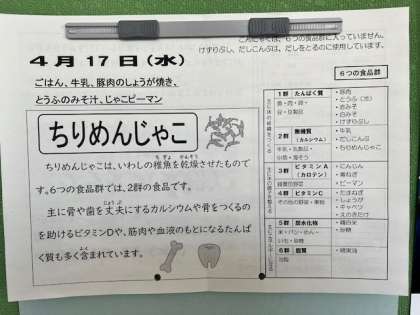 こんにゃくは、6つの食品群に入っていません。
けずりぶし、だしこんぶは、だしをとるのに使用しています。
4月17日(水)
ごはん、牛乳、豚肉のしょうが焼き、
とうふのみそ汁、じゃこピーマン
ちりめんじゃこ
ちりめんじゃこは、いわしの稚魚を乾燥させたもので
す。6つの食品群では、2群の食品です。
主に骨や歯を丈夫にするカルシウムや骨をつくるの
を助けるビタミンDや、筋肉や血液のもとになるたんぱ
く質も多く含まれています。
6つの食品群
1群 たんぱく質
魚・肉・卵・
豆・豆製品
・豚肉
・とうふ(大)
・赤みそ
・白みそ
・けずりぶし
2群 無機質
(カルシウム)
牛乳・乳製品・
小魚・海そう
・牛乳
・だしこんぶ
・ちりめんじゃこ
3群 ビタミンA
(カロテン)
緑黄色野菜
・にんじん
・青ねぎ
・ピーマン
4群 ビタミンC
その他の野菜・果物
・たまねぎ
・しょうが
・キャベツ
・えのきたけ
5群 炭水化物
米・パン・めん・
いも・砂糖
・精白米
・砂糖
6群 脂質
油脂
・綿実油